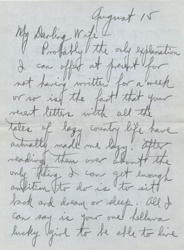 August 15
My Darling Wife
Probably the only explanation
I can offer at present for
not having written for a week
or so is the fact that your
recent letters with all the
tales of lazy country life have
actually made me lazy. After
reading them over about the
only thing I can get enough
ambition to do is to sit
back and dream or sleep. All I
can say is your one helluva
lucky girl to be able to live